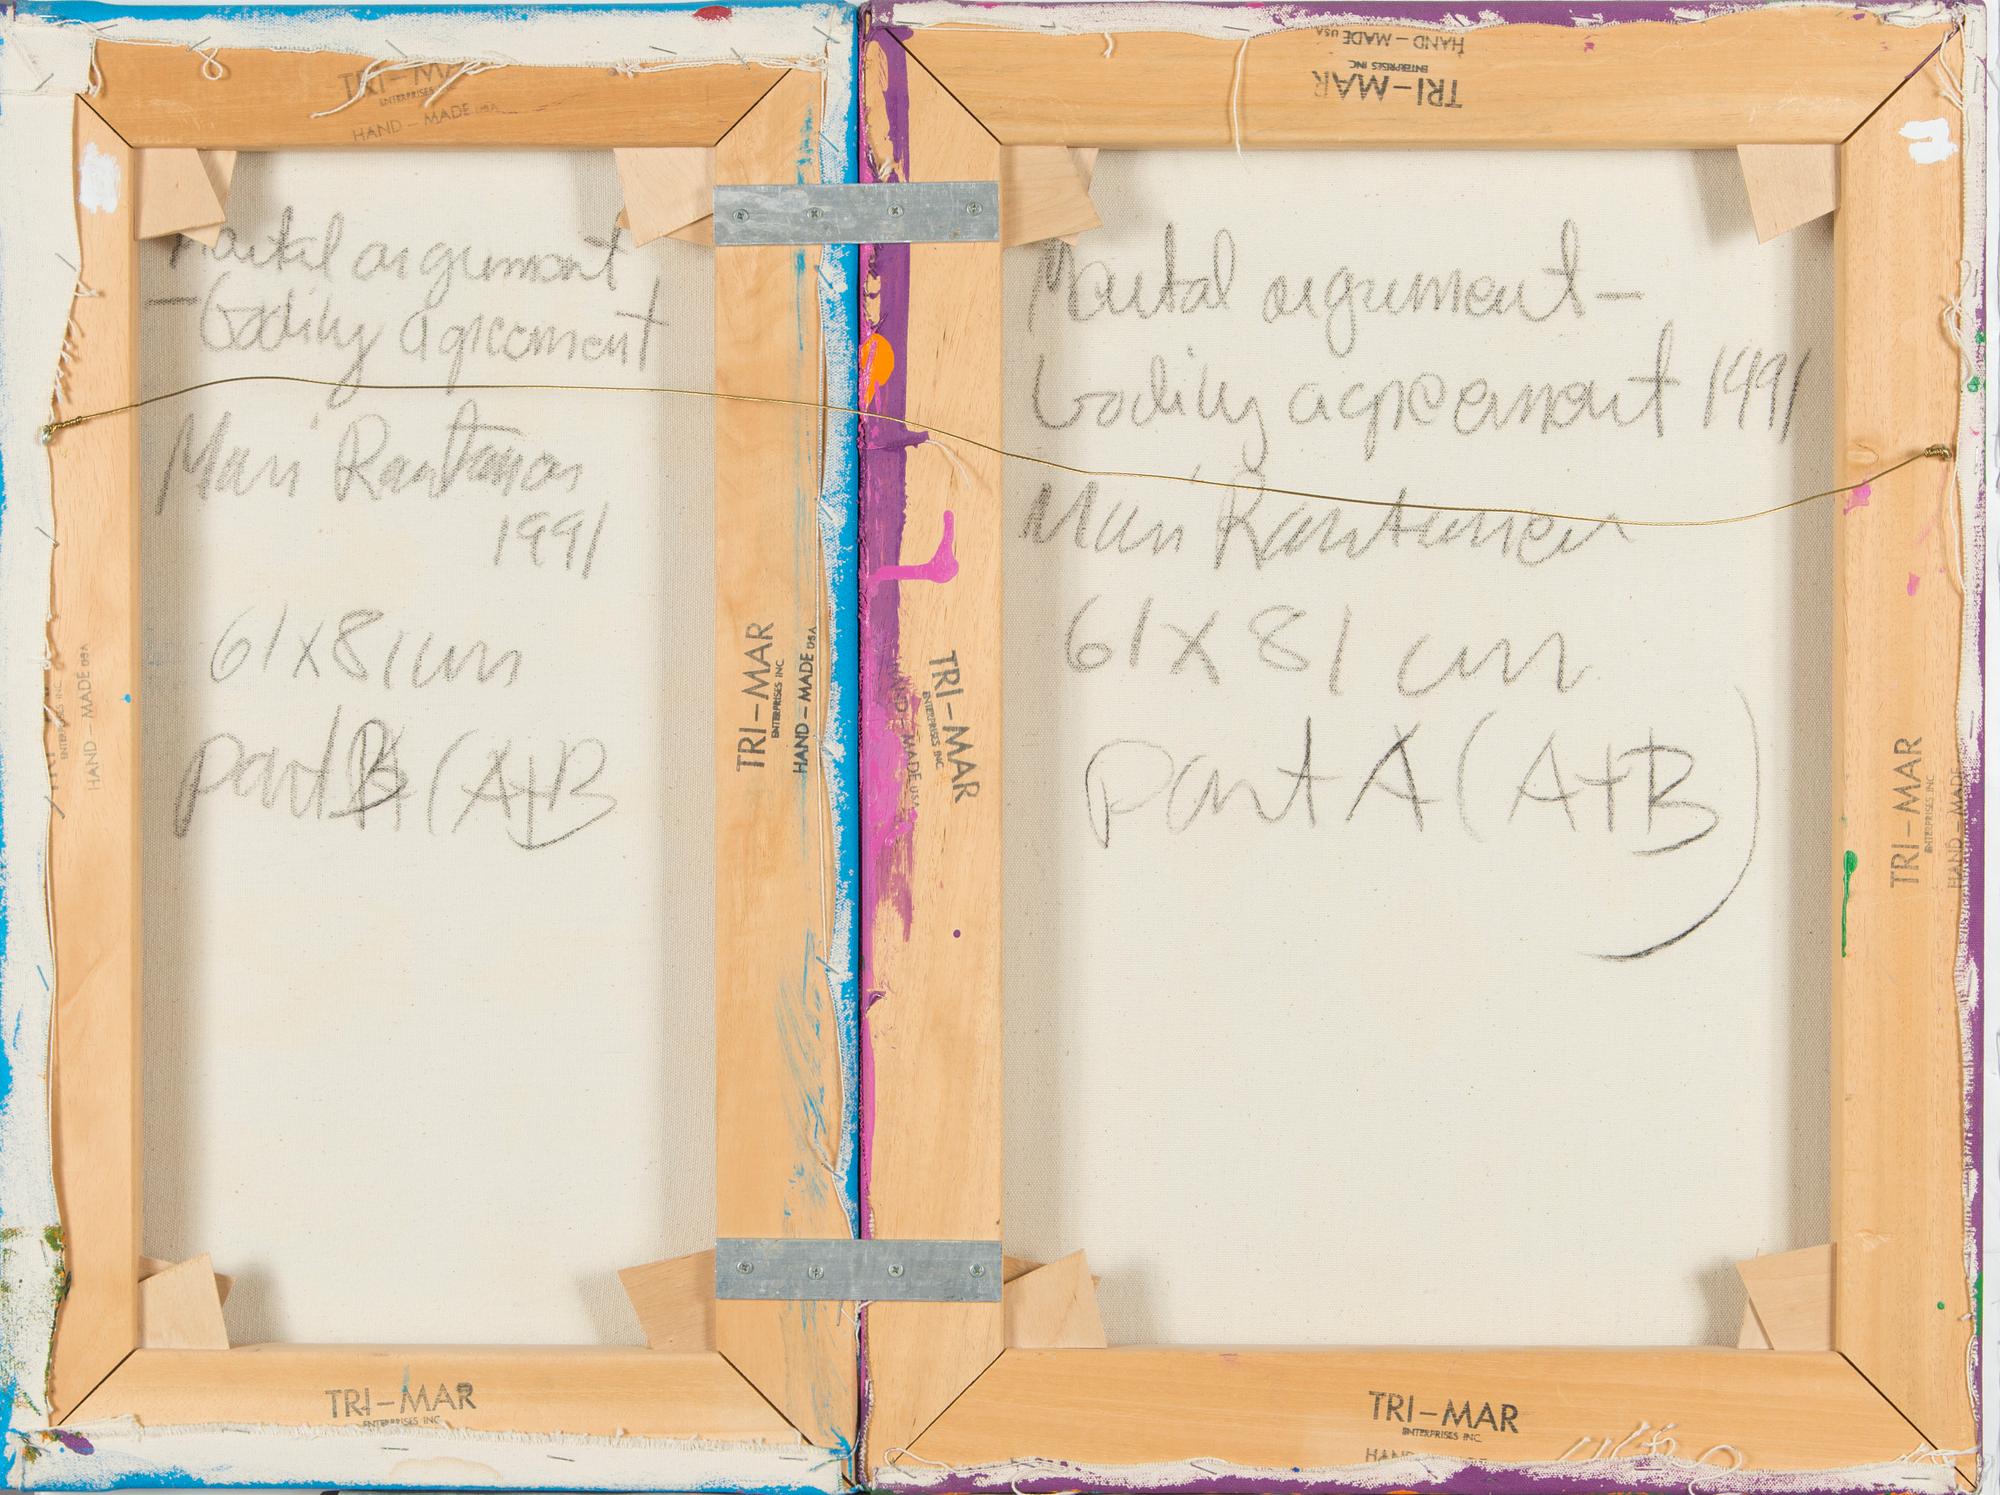 TRI-MAR
ENTERPRISES INC
HAND-MADE USA
Mental argument
– bodily agreement
Mari Rantanen
1991
61x81 cm
part B (A+B
TRI-MAR
ENTERPRISES INC
HAND-MADE USA
TRI-MAR
ENTERPRISES INC.
HAND-MADE USA
TRI-MAR
ENTERPRISES INC
HAND-MADE USA
TRI-MAR
ENTERPRISES INC.
HAND-MADE USA
Mental argument –
bodily agreement 1991
Mari Rantanen
61x81 cm
part A (A+B)
TRI-MAR
ENTERPRISES INC
HAND-MADE
ENTERPRISES INC
HAND-MADE USA
TRI-MAR
ENTERPRISES INC.
TRI-MAR
ENTERPRISES INC.